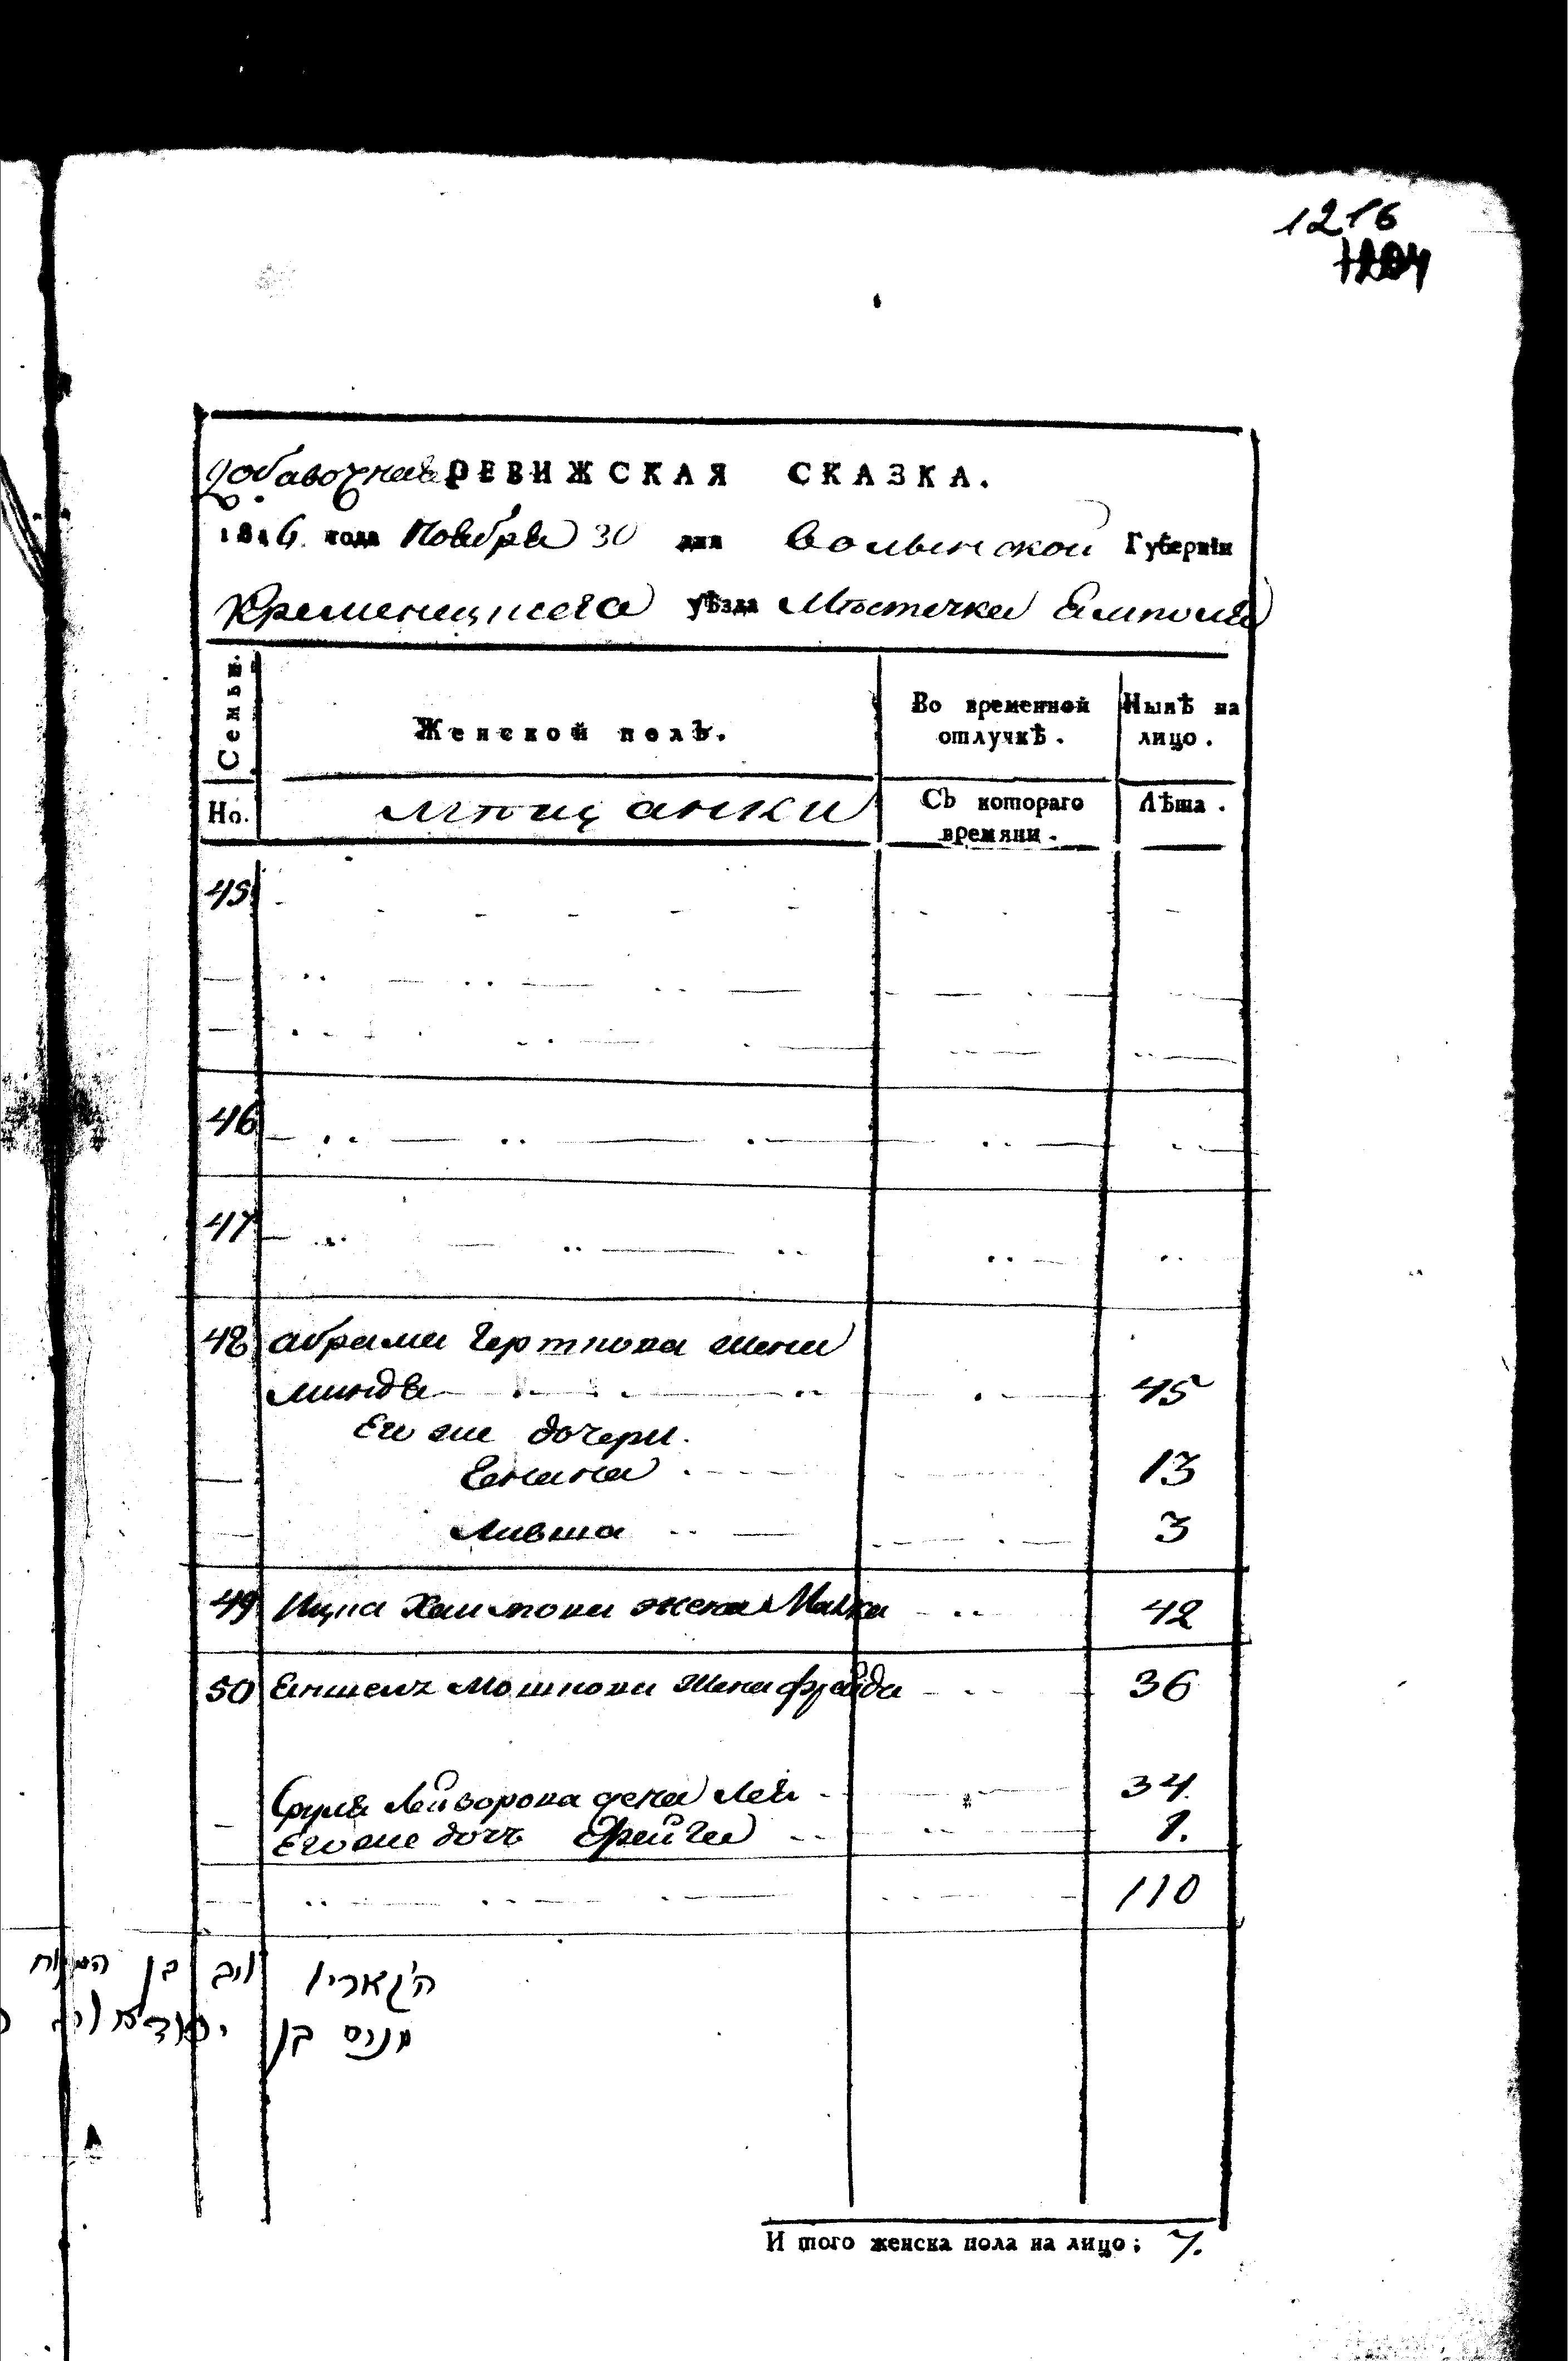 1216
1204
добавочная РЕВИЖСКАЯ СКАЗКА.
1816 года Ноября 30 дня Волынской Губерніи
Кременецкаго уѣзда Мѣстечка Ямполя
Семьи.
Женской полъ.
Во временной отлучкѣ.
Нынѣ на лицо.
Но.
мѣщанки
Съ котораго времяни.
Лѣта.
45
46
47
48 Абрама Герткова жена
Миндля 45
Его же дочери.
13
Ливша 3
49 Ицка Хаимова жена Малка 42
50 Мошкова жена Фрейда 36
Сруля Лейзорова жена Лея 34.
Его же дочь Фейга 1.
110
בן
מניס בן
И того женска пола на лицо: 7.